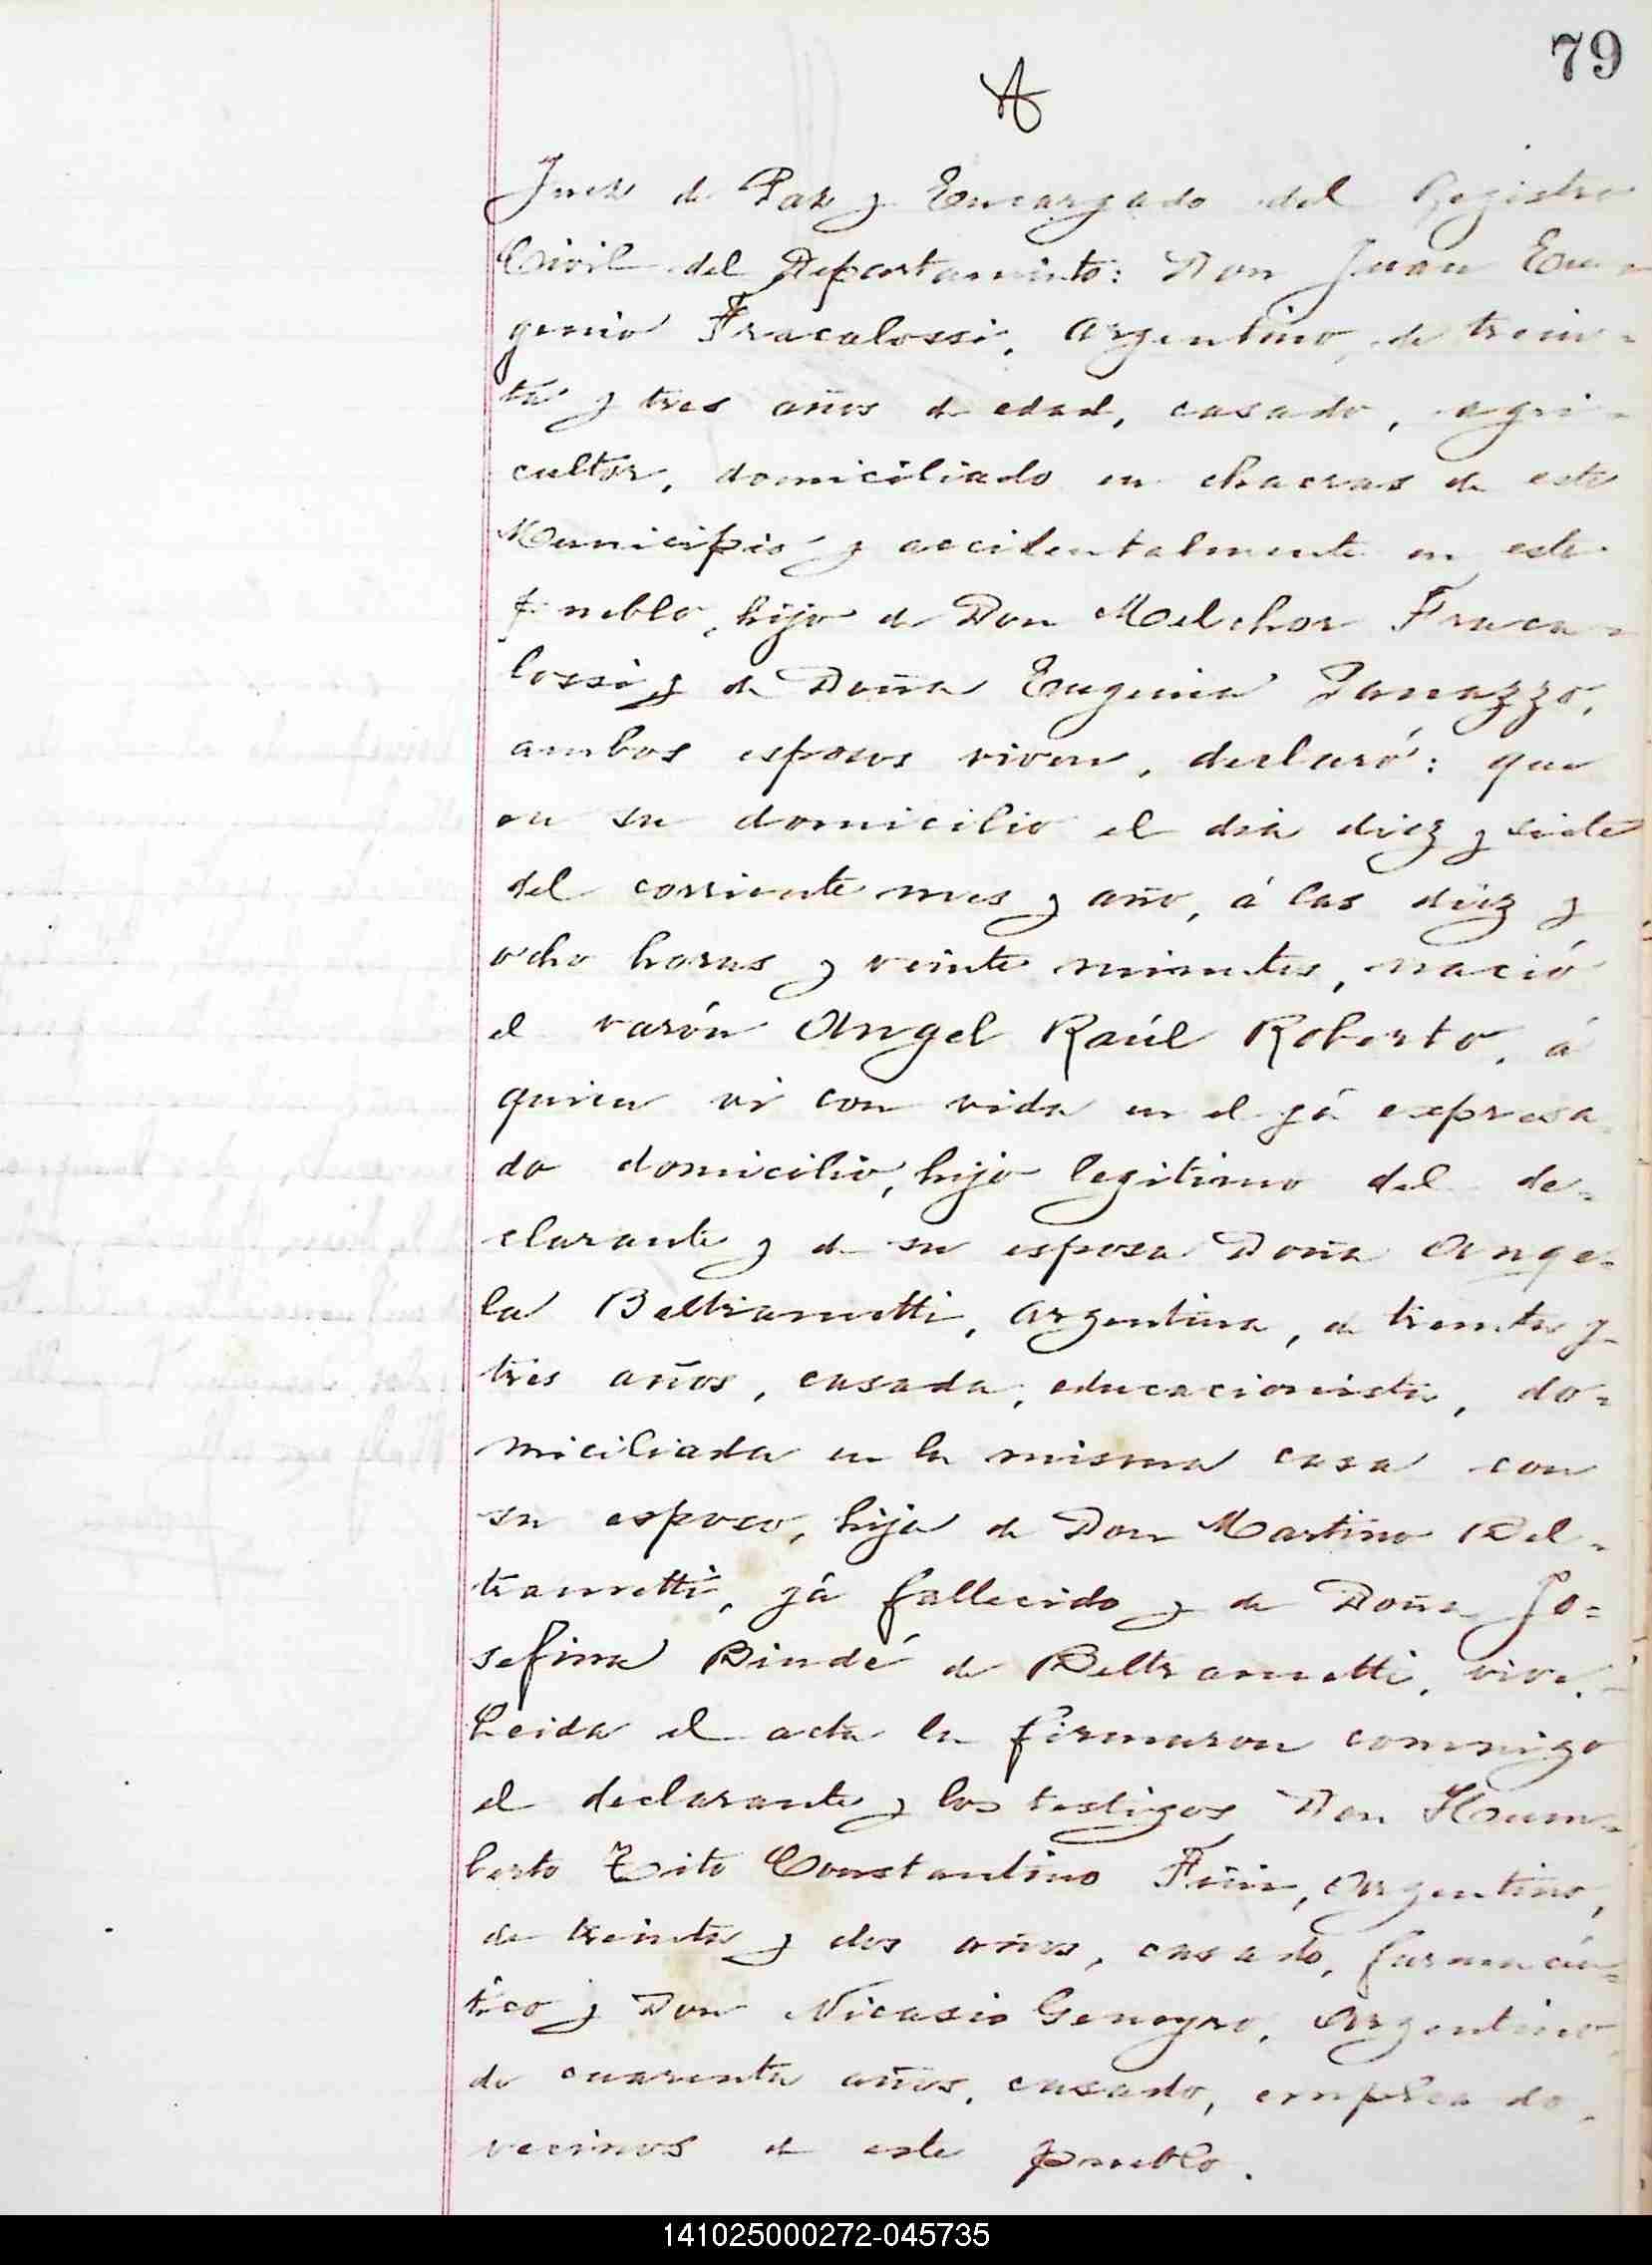 79
Juez de Paz y Encargado del Registro
Civil del Departamento: Don Juan Eu-
genio Fracalossi, Argentino, de trein-
ta y tres años de edad, casado, agri-
cultor, domiciliado en chacras de este
Municipio y accidentalmente en este
pueblo, hijo de Don Melchor Fraca-
lossi y de Doña Eugenia Panazzo,
ambos esposos viven, declaró: que
en su domicilio el dia diez y siete
del corriente mes y año, á las diez y
ocho horas y veinte minutos, nació
el varón Angel Raúl Roberto, á
quien vi con vida en el yá expresa-
do domicilio, hijo legitimo del de-
clarante y de su esposa Doña Ange-
la Beltrametti, Argentina, de treinta y
tres años, casada, educacionista, do-
miciliada en la misma casa con
su esposo, hija de Don Martino Bel-
trametti, yá fallecido y de Doña Jo-
sefina Bindé de Beltrametti, vive.
Leida el acta la firmaron conmigo
el declarante y los testigos Don Hum-
berto Tito Constantino, Argentino,
de treinta y dos años, casado, farmacéu-
tico y Don Nicasio, Argentino
de cuarenta años, casado, empleado,
vecinos de este pueblo.
141025000272-045735